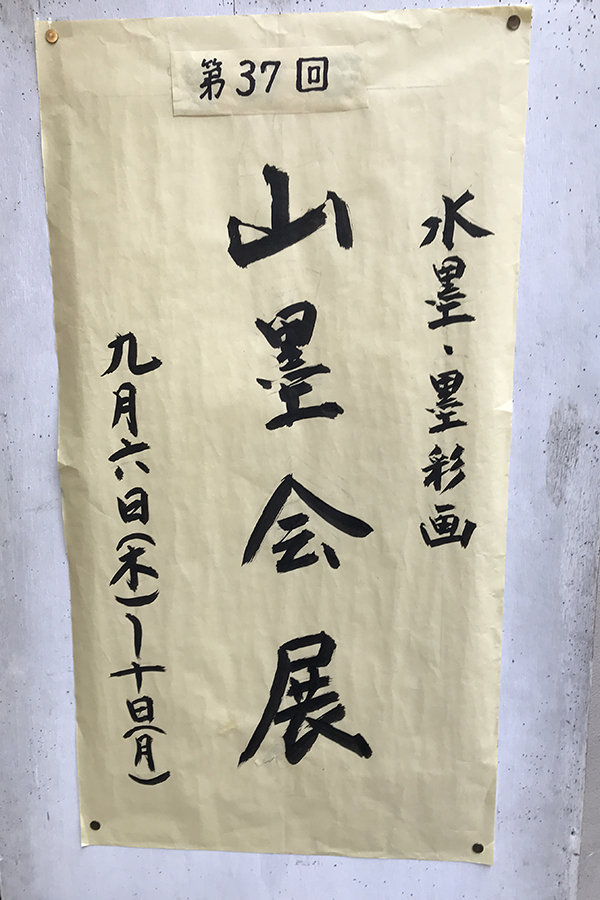 第37回
水墨・墨彩画
山墨会展
九月六日(木)〜十日(月)